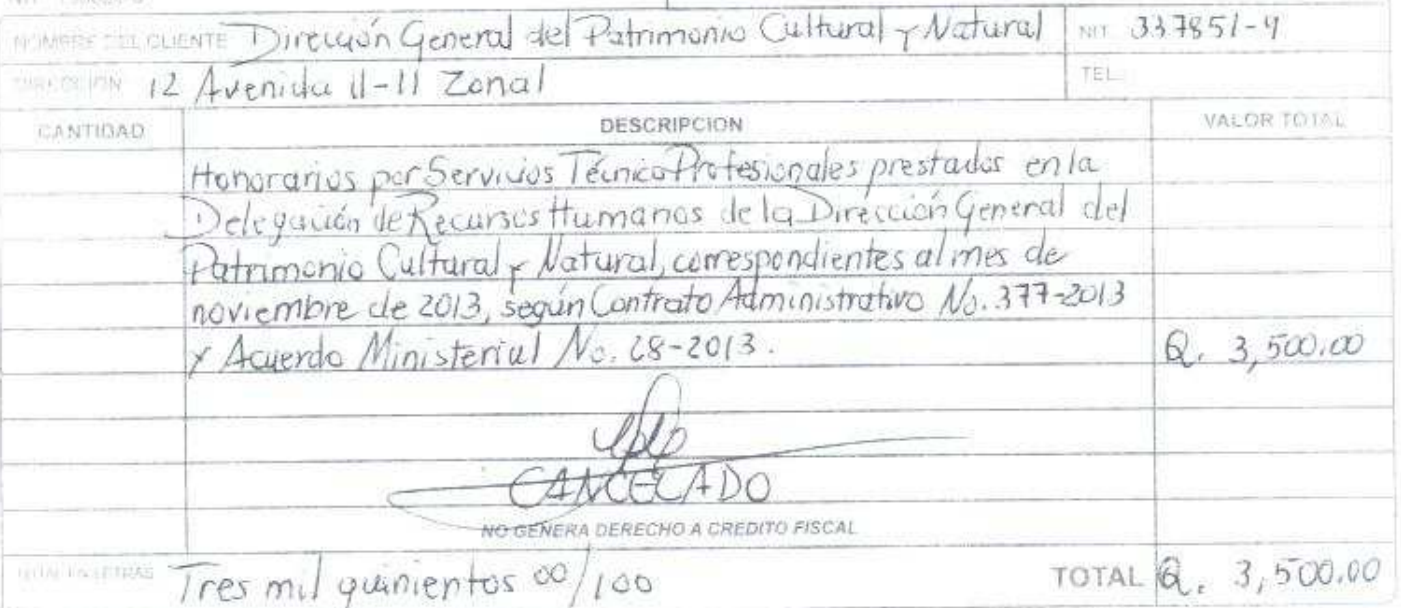 NOMBRE DEL CLIENTE Dirección General del Patrimonio Cultural y Natural NIT 337851-4
DIRECCION 12 Avenida 11-11 Zona 1 TEL.
CANTIDAD DESCRIPCION VALOR TOTAL
Honorarios por Servicios Técnico Profesionales prestados en la
Delegación de Recursos Humanos de la Dirección General del
Patrimonio Cultural y Natural, correspondientes al mes de
noviembre de 2013, según Contrato Administrativo No. 377-2013
y Acuerdo Ministerial No. 28-2013. Q. 3,500.00
CANCELADO
NO GENERA DERECHO A CREDITO FISCAL
TOTAL EN LETRAS Tres mil quinientos 00/100 TOTAL Q. 3,500.00